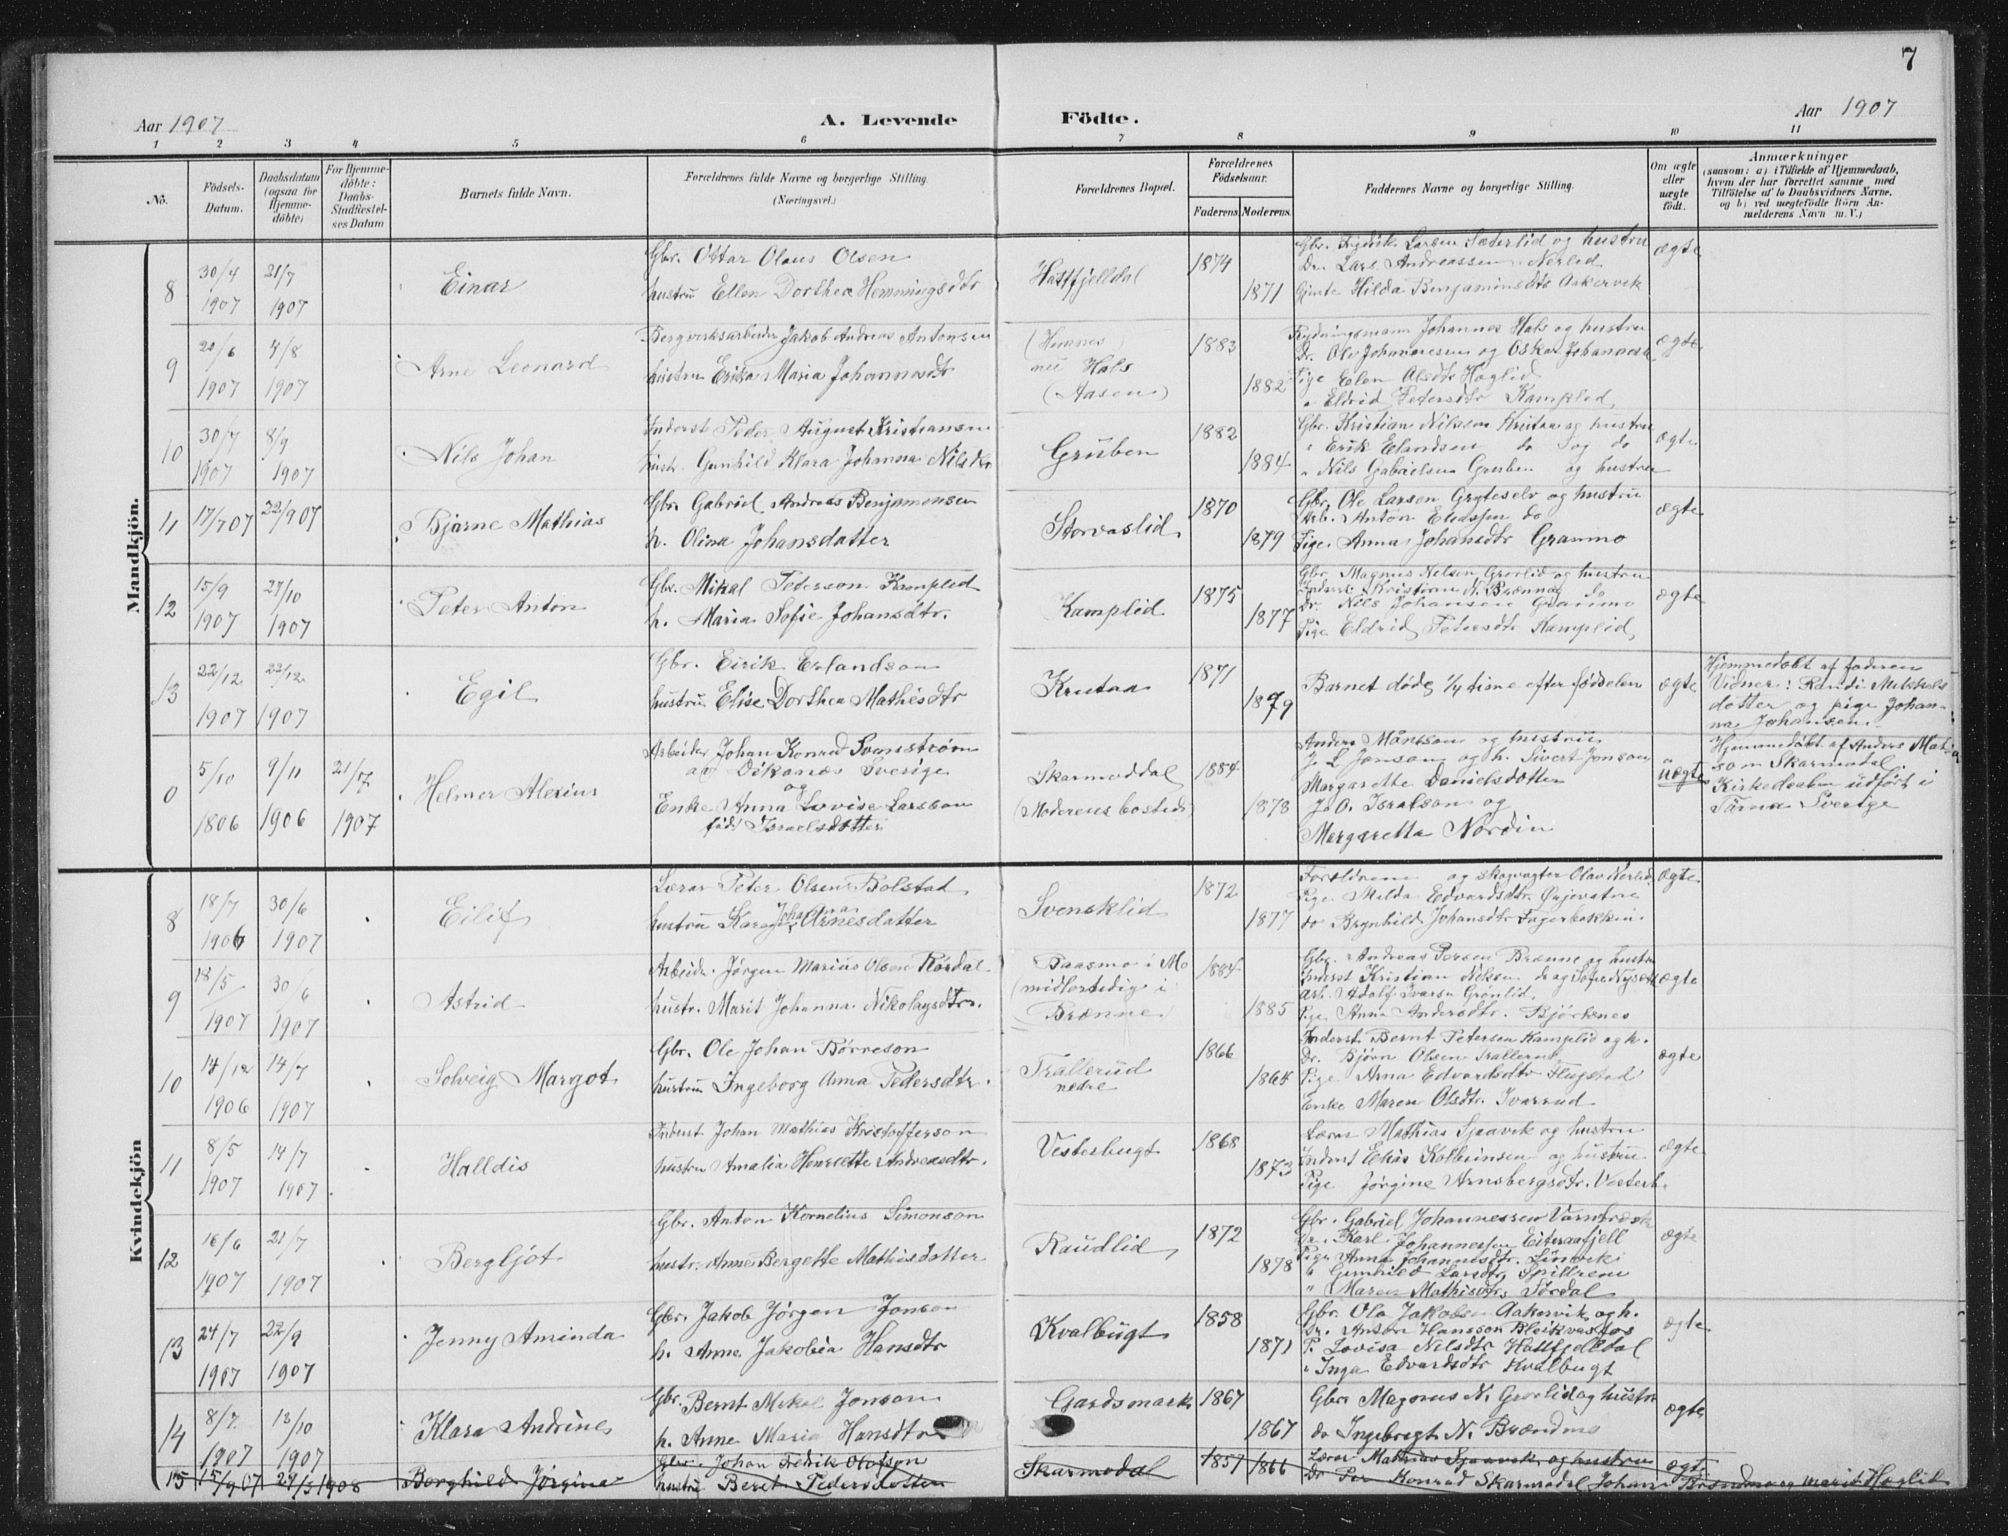 7
Aar 1907
A. Levende Födte.
Aar 1907
1 2 3 4 5 6 7 8 9 10 11
No.
Födsels-
Datum.
Daabsdatum
(ogsaa for
Hjemme-
döbte)
For Hjemme-
döbte:
Daabs-
Stadfæstel-
ses Datum
Barnets fulde Navn.
Forældrenes fulde Navne og borgerlige Stilling.
(Næringsvei.)
Forældrenes Bopæl.
Forældrenes
Födselsaar.
Faderens. Moderens.
Faddernes Navne og borgerlige Stilling.
Om ægte
eller
uægte
födt.
Anmærkninger
(saasom: a) i Tilfælde af Hjemmedaab,
hvem der har forrettet samme med
Tilföielse af to Daabsvidners Navne,
og b) ved uægtefödte Börn An-
melderens Navn m. V.)
Mandkjön.
8 30/4 1907 21/7 1907 Einar
Gbr. Ottar Olaus Olsen
hustru Ellen Dorthea Hemmingsdtr
Hatfjelldal 1874 1871
Gbr. Fredrik Larsen Sæterlid og hustru
Dr. Lars Andreassen Nerlid
Gjente Hilda Benjaminsdtr Aakervik
ægte
9 20/6 1907 4/8 1907 Arne Leonard
Bergverksarbeider Jakob Andreas Antonsen
hustru Erika Maria Johannesdtr
(Hemnes)
nu Hals
(Aasen)
1883 1882
Rydningsmann Johannes Hals og hustru
Dr. Ole Johannesen og Oskar Johannes
Pige Elen Olsdtr Haglid
" Eldrid Petersdtr Kamplid
ægte
10 30/7 1907 8/9 1907 Nils Johan
Inderst Peder August Kristiansen
hust. Gunhild Klara Johanna Nilsdtr
Gruben 1882 1884
Gbr. Kristian Nilssen Krutaa og hustru
" Erik Erlandsen do og do
" Nils Gabrielsen Gruben og hustru
ægte
11 17/7 07 22/9 07 Bjarne Mathias
Gbr. Gabriel Andreas Benjamensen
h. Olina Johansdatter
Storvaslid 1870 1879
Gbr. Ole Larsen Gryteselv og hustru
Arb. Anton Eliassen do
Pige Anna Johansdtr Granmo
ægte
12 15/9 1907 27/10 1907 Peter Anton
Gbr. Mikal Peterson Kamplid
h. Maria Sofie Johansdtr.
Kamplid 1875 1877
Gbr. Magnus Nelsen Grørlid og hustru
Inderst Kristian N. Brænmo do
Dr. Nils Johansen Granmo
Pige Eldrid Petersdtr Kamplid
ægte
13 22/12 1907 22/12 1907 Egil
Gbr. Eirik Erlandson
hustru Elise Dorthea Mathisdtr
Krutaa 1871 1879
Barnet døde 1/4 time efter fødselen
ægte
Hjemmedøbt af faderen
Vidner: Randi Mikkels
datter og pige Johan-
na Johansen.
0 5/10 1806 9/11 1906 21/7 1907 Helmer Alexius
Arbeider Johan Konrad Svenstrøm
av Dikanæs Sverige
og
Enke Anna Lovise Larsson
født Israelsdotter
Skarmoddal
(Moderens bosted)
1884 1878
Anders Månsson og hustru
J. L. Jonson og h. Sivert Jonson
Margarette Danielsdotter
J. O. Israelson og
Margaretta Nordin
uægte
Hjemmedøbt af Anders Mat-
son Skarmodal
Kirkedaaben udført i
Tärna Sverige
Kvindekjön
8 18/7 1906 30/6 1907 Eilif
Lærar Peter Olsen Bolstad
hustru Karen Johanna Arnesdatter
Svensklid 1872 1877
Forældrene og skogvogter Olav Nerlid
Pige Milda Edvardsdtr Ørjevatne
do Brynhild Johansdtr Fagerbakken.
ægte
9 18/5 1907 30/6 1907 Astrid
Arbeider Jørgen Marius Olsen Rørdal
hustr. Marit Johanna Nikolaysdtr.
Baasmo i Mo
(midlertidig i
Brænne)
1884 1885
Gbr. Andreas Persen Brænne og hustru
Inderst Kristian Nilsen
Arb. Adolf Ivarsen Grønlid
Pige Anna Andersdtr. Bjørkenes
ægte
10 14/12 1906 14/7 1907 Solveig Margot
Gbr. Ole Johan Børreson
hustru Ingeborg Anna Pedersdtr.
Trallerud
nedre
1866 1864
Inderst. Bernt Petersen Kamplid og h.
Dr. Bjørn Olsen Trallerud
Pige Arna Edvardsdtr Flugstad
Enke Maren Olsdtr. Ivarrud
ægte
11 8/5 1907 14/7 1907. Halldis
Inderst Johan Mathias Kristofferson
hustru Amalia Henriette Andreasdtr.
Vesterbugt 1868 1873
Lærer Mathias Sjaavik og hustru
Inderst Elias Kolbeinsen og hustru
Pige Jørgine Arnsbergsdtr. Vesterb.
ægte
12 16/6 1907 21/7 1907 Bergljot
Gbr. Anton Kornelius Simonson
hustr. Anne Bergette Mathisdatter
Raudlid 1872 1878
Gbr. Gabriel Johannessen Varnfræsk
Dr. Karl Johannessen Eiteraafjell
Pige Anna Johannesdtr.
" Gunhild Larsdtr, Spillren
" Maren Mathisdtr, Sørdal
ægte
13 24/7 1907 22/9 1907 Jenny Aminda
Gbr. Jakob Jørgen Jonson
h. Anne Jakobia Hansdtr
Kvalbugt 1858 1871
Gbr. Ole Jakobsen Aakervik og h.
Dr. Anton Hansson Bleikvasfos
P. Lovisa Nilsdtr Hatfjeldal
" Inga Edvardsdtr Kvalbugt
ægte
14 8/7 1907 13/10 1907 Klara Andrine
Gbr. Bernt Mikal Jonson
h. Anne Maria Hansdtr
Gardsmark 1867 1867
Gbr. Magnus N. Grørlid og hustru
do Ingebregt N. Brændmo
ægte
15 15/9 07 29/3 1908 Borghild Jørgine
Gbr. Johan Fredrik Olofson
hustru Beret Pedersdotter
Skarmodal 1857 1866
Lærer Mathias Sjaavik og hustru
Dr Per Konrad Skarmodal Johan Brændmo og Marit Haglid
ægt